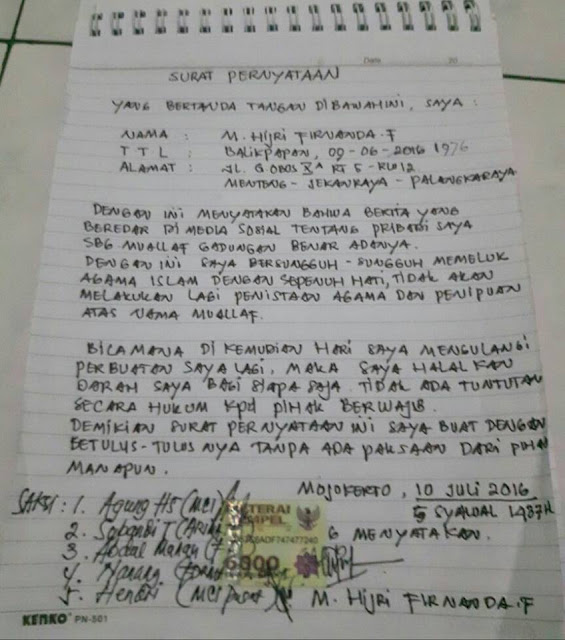 Date 20
SURAT PERNYATAAN
YANG BERTANDA TANGAN DIBAWAH INI, SAYA :
NAMA : M. HIJRI FIRNANDA. F
T T L : BALIKPAPAN, 09-06-2016 1976
ALAMAT : JL. G. OBOS XA RT 5 - RW 12
MENTENG - JEKANRAYA - PALANGKARAYA
DENGAN INI MENYATAKAN BAHWA BERITA YANG
BEREDAR DI MEDIA SOSIAL TENTANG PRIBADI SAYA
SBG MUALLAF GADUNGAN BENAR ADANYA.
DENGAN INI SAYA BERSUNGGUH-SUNGGUH MEMELUK
AGAMA ISLAM DENGAN SEPENUH HATI, TIDAK AKAN
MELAKUKAN LAGI PENISTAAN AGAMA DAN PENIPUAN
ATAS NAMA MUALLAF.
BILAMANA DI KEMUDIAN HARI SAYA MENGULANGI
PERBUATAN SAYA LAGI, MAKA SAYA HALALKAN
DARAH SAYA BAGI SIAPA SAJA. TIDAK ADA TUNTUTAN
SECARA HUKUM KPD PIHAK BERWAJIB.
DEMIKIAN SURAT PERNYATAAN INI SAYA BUAT DENGAN
SETULUS-TULUSNYA TANPA ADA PAKSAAN DARI PIHAK
MANAPUN.
MOJOKERTO, 10 JULI 2016
5 SYAWAL 1437H
SAKSI : 1. Agung HS (MCI)
2. T
3. Abdul
4.
5. Hendri (MCI Pusat)
METERAI
TEMPEL
ADF747477240
6000
YG MENYATAKAN.
M. HIJRI FIRNANDA. F
KENKO PN-501